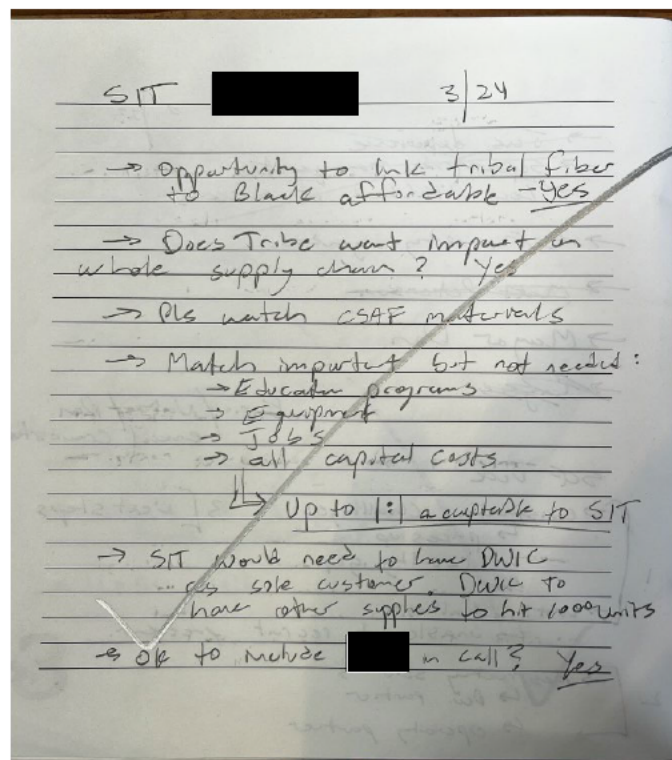 SIT 3/24
→ Opportunity to link tribal fiber
to Black affordable - Yes
→ Does Tribe want impact on
whole supply chain? Yes
→ Pls watch CSAF materials
→ Match important but not needed:
→ Education programs
→ Equipment
→ Jobs
→ all capital costs
↳ Up to 1:1 acceptable to SIT
→ SIT would need to have DWIC
as sole customer. DWIC to
have other suppliers to hit 1000 units
→ OK to include in call? Yes